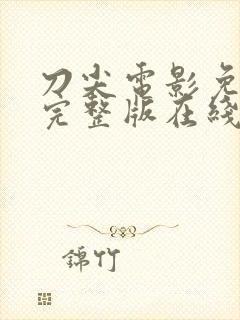 刀尖電影免
完整版在綫
錦竹